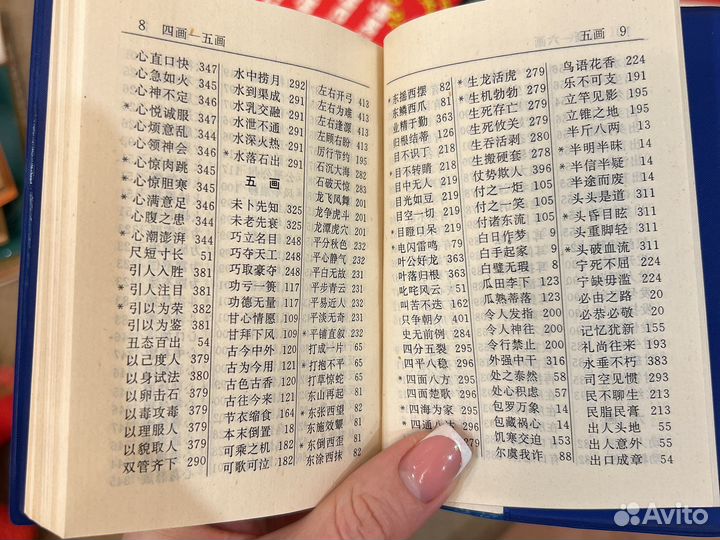 8 四画—五画
心直口快 347
心急如火 347
* 心神不定 346
* 心悦诚服 347
心烦意乱 344
心领神会 344
* 心惊肉跳 345
* 心惊胆寒 345
* 心满意足 346
心腹之患 344
* 心潮澎湃 344
尺短寸长 51
引人入胜 381
* 引人注目 381
* 引以为荣 382
引以为鉴 381
丑态百出 54
以己度人 379
以身试法 380
以卵击石 379
以毒攻毒 379
以理服人 379
以貌取人 379
双管齐下 290
水中捞月 292
水到渠成 291
水乳交融 291
水泄不通 291
水深火热 291
* 水落石出 291
五画
未卜先知 325
未老先衰 325
巧立名目 248
巧夺天工 248
巧取豪夺 248
功亏一篑 117
功德无量 117
甘心情愿 109
甘拜下风 109
古今中外 120
古为今用 121
古色古香 120
古往今来 121
节衣缩食 164
本末倒置 18
可乘之机 182
可歌可泣 182
左右开弓 413
左右为难 413
左右逢源 413
左顾右盼 413
厉行节约 195
石沉大海 281
石破天惊 281
龙飞凤舞 201
龙争虎斗 201
龙潭虎穴 201
平分秋色 232
平心静气 232
平白无故 232
平步青云 232
平易近人 232
平淡无奇 232
* 平铺直叙 232
打成一片 65
* 打抱不平 65
打草惊蛇 65
东山再起 81
* 东张西望 82
东施效颦 81
* 东倒西歪 81
东涂西抹 82
五画 9
* 东摇西摆 82
东鳞西爪 81
业精于勤 363
归根结蒂 126
目不识丁 218
* 目不转睛 218
目中无人 219
目光如豆 219
目空一切 219
* 目瞪口呆 219
* 电闪雷鸣 79
叶公好龙 366
叶落归根 366
叱咤风云 51
叫苦不迭 162
只争朝夕 401
史无前例 284
四分五裂 295
四平八稳 296
* 四面八方 295
四面楚歌 296
* 四海为家 295
* 四通八达
* 生龙活虎 279
* 生机勃勃 279
生死存亡 279
生死攸关 279
生吞活剥 280
生搬硬套 279
仗势欺人 395
付之一炬 105
付之一笑 105
付诸东流 105
白日作梦 9
白手起家 9
白璧无瑕 9
瓜田李下 121
瓜熟蒂落 121
令人发指 200
令人神往 200
令行禁止 200
外强中干 316
处之泰然 57
处心积虑 57
包罗万象 14
包藏祸心 14
饥寒交迫 153
尔虞我诈 88
鸟语花香 224
乐不可支 191
立竿见影 196
立锥之地 196
半斤八两 13
* 半明半昧 13
* 半信半疑 13
半途而废 13
头头是道 311
* 头昏目眩 311
头重脚轻 311
* 头破血流 311
宁死不屈 224
宁缺毋滥 224
必由之路 20
必恭必敬 20
记忆犹新 155
礼尚往来 193
永垂不朽 383
司空见惯 293
民不聊生 215
民脂民膏 215
出人头地 54
出人意外 54
出口成章 54
Avito